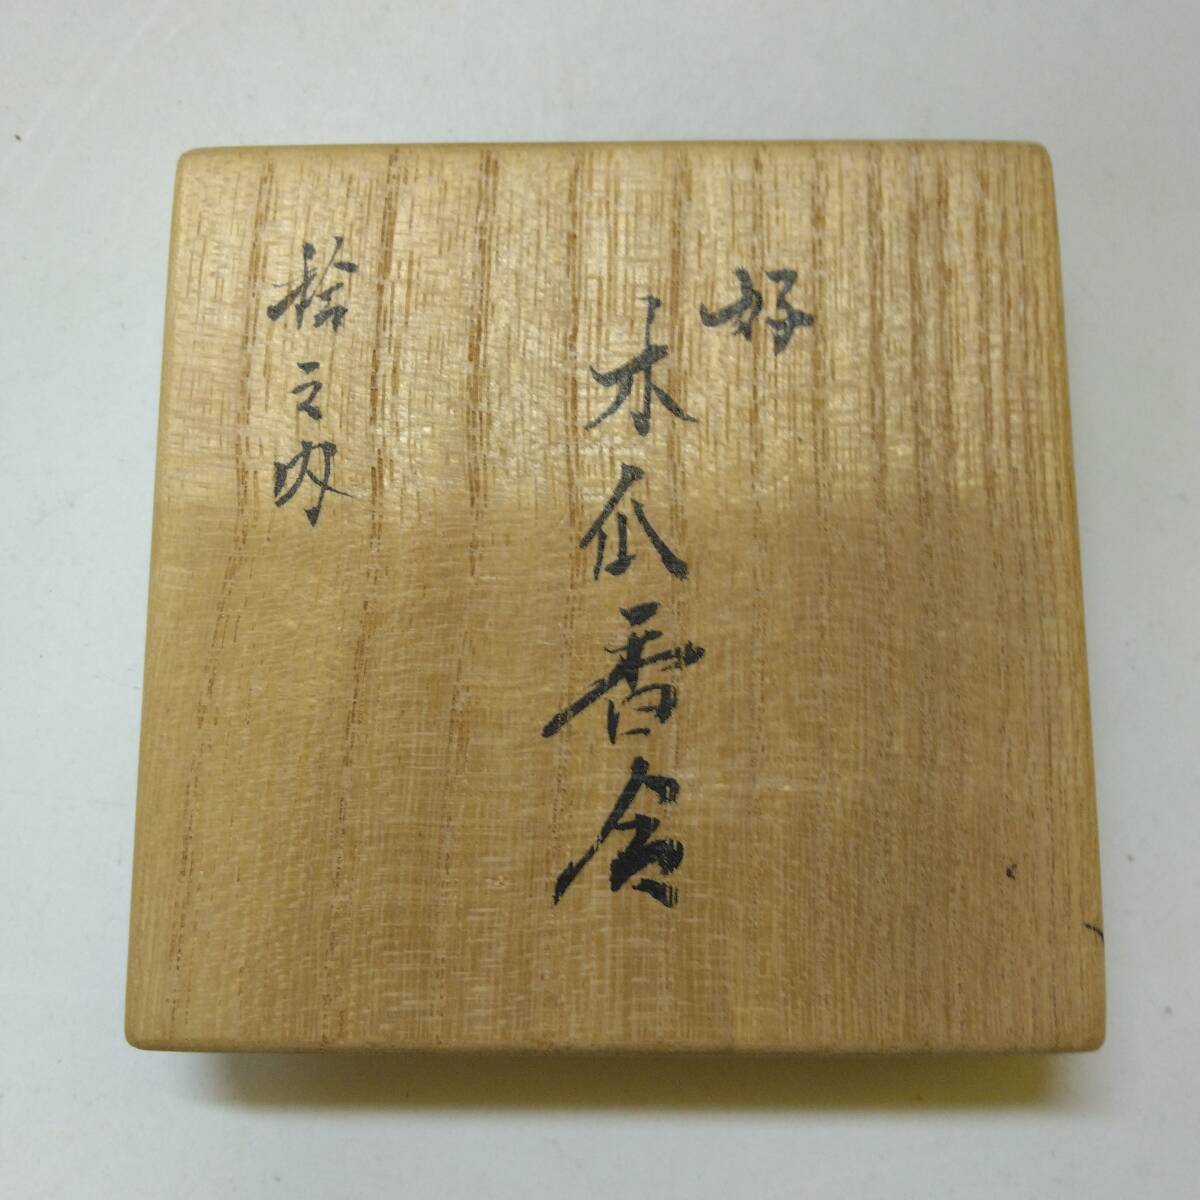 好
木瓜香合
拾之内